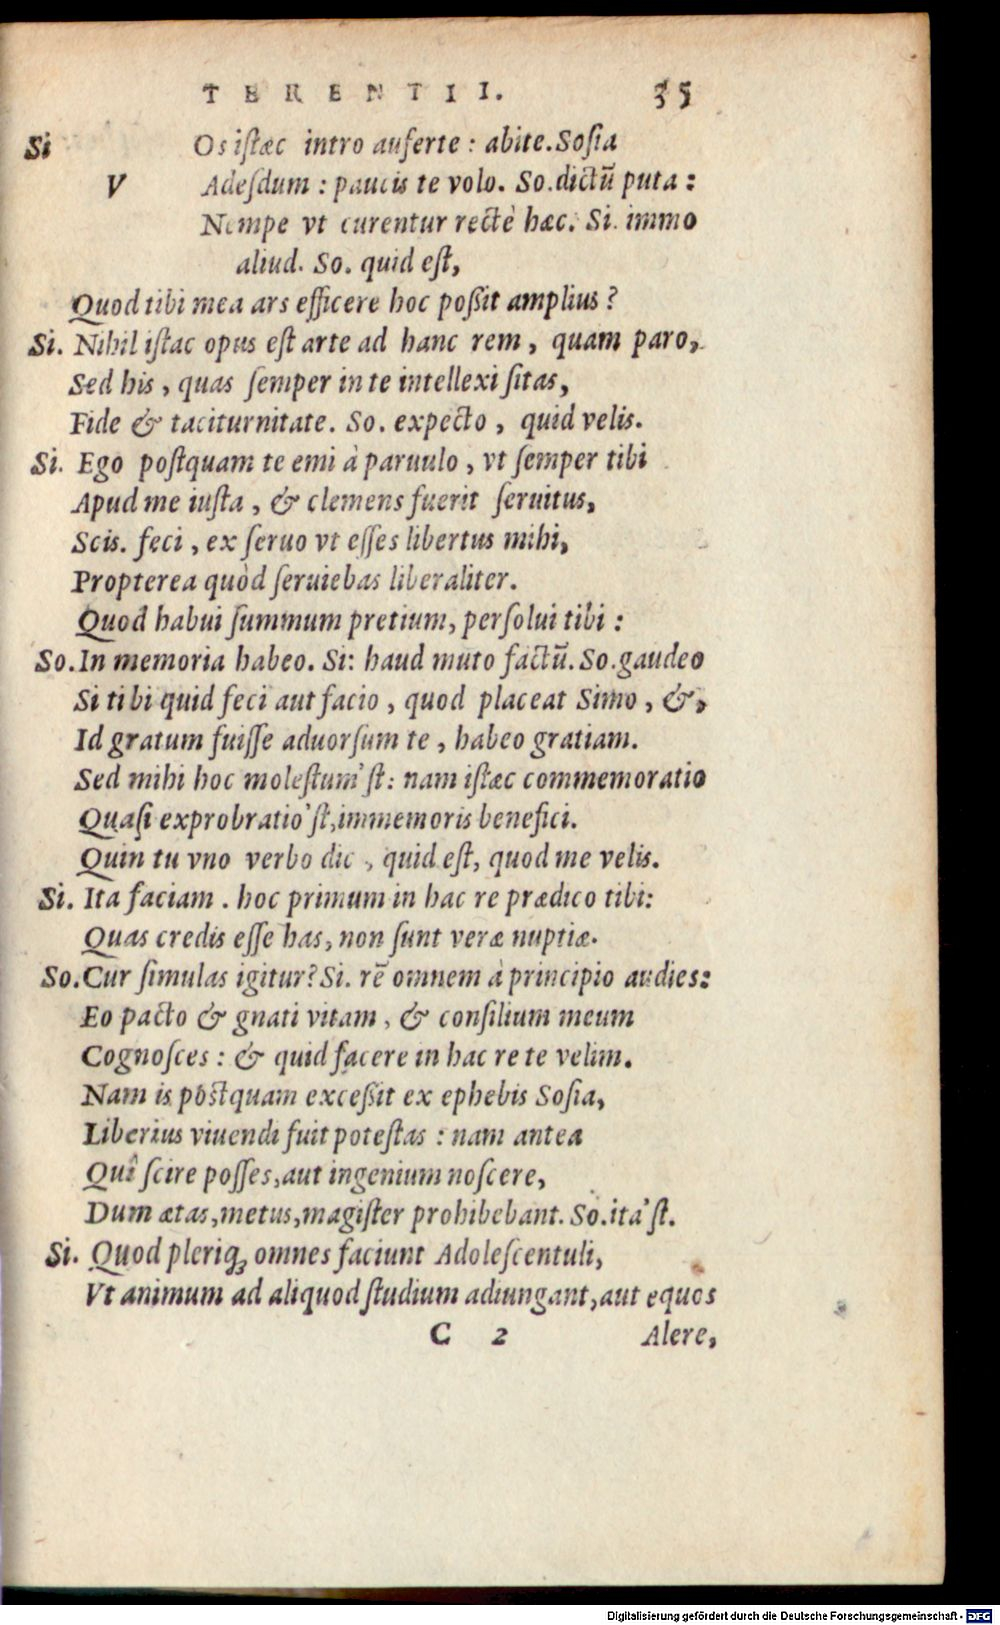 TERENTII. 35
Si Os istæc intro auferte : abite. Sosia
V Adesdum : paucis te volo. So. dictũ puta :
Nempe vt curentur rectè hæc. Si. immo
aliud. So. quid est,
Quod tibi mea ars efficere hoc poßit amplius ?
Si. Nihil istac opus est arte ad hanc rem, quam paro,
Sed his, quas semper in te intellexi sitas,
Fide & taciturnitate. So. expecto, quid velis.
Si. Ego postquam te emi à paruulo, vt semper tibi
Apud me iusta, & clemens fuerit seruitus,
Scis. feci, ex seruo vt esses libertus mihi,
Propterea quòd seruiebas liberaliter.
Quod habui summum pretium, persolui tibi :
So. In memoria habeo. Si: haud muto factũ. So. gaudeo
Si tibi quid feci aut facio, quod placeat Simo, &,
Id gratum fuisse aduorsum te, habeo gratiam.
Sed mihi hoc molestum'st: nam istæc commemoratio
Quasi exprobratio'st, immemoris benefici.
Quin tu vno verbo dic, quid est, quod me velis.
Si. Ita faciam. hoc primum in hac re prædico tibi:
Quas credis esse has, non sunt veræ nuptiæ.
So. Cur simulas igitur? Si. rẽ omnem à principio audies:
Eo pacto & gnati vitam, & consilium meum
Cognosces : & quid facere in hac re te velim.
Nam is postquam exceßit ex ephebis Sosia,
Liberius viuendi fuit potestas : nam antea
Quî scire posses, aut ingenium noscere,
Dum ætas, metus, magister prohibebant. So. ita'st.
Si. Quod pleriq; omnes faciunt Adolescentuli,
Vt animum ad aliquod studium adiungant, aut equos
C 2 Alere,
Digitalisierung gefördert durch die Deutsche Forschungsgemeinschaft - DFG